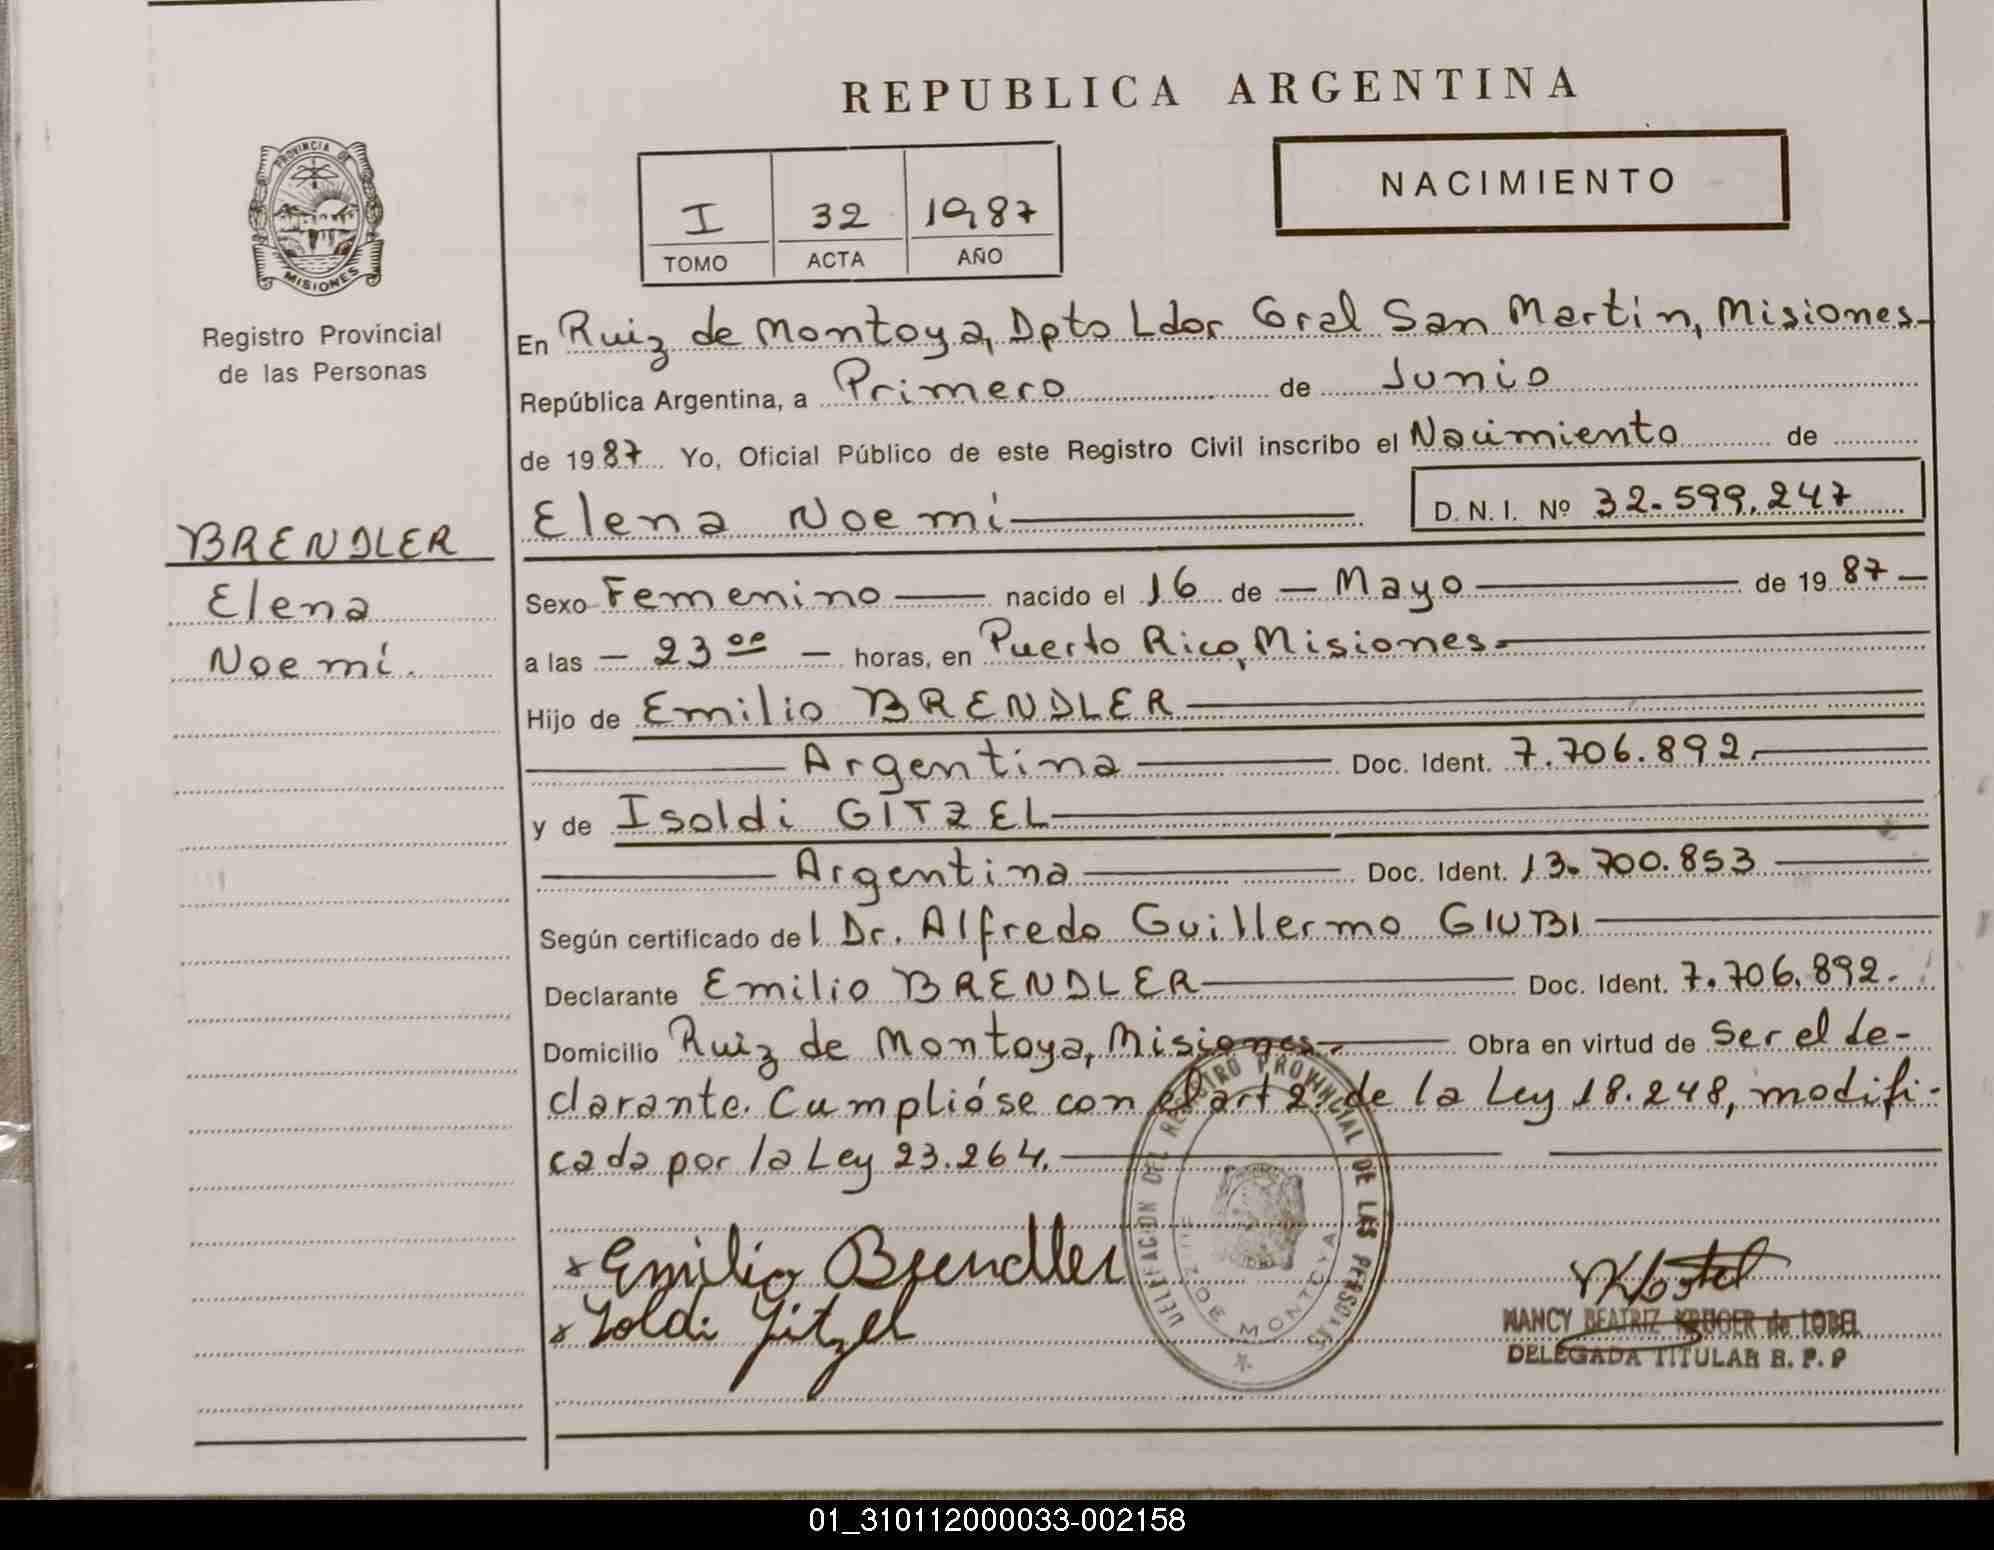 REPUBLICA ARGENTINA
NACIMIENTO
I 32 1987
TOMO ACTA AÑO
PROVINCIA DE
MISIONES
Registro Provincial
de las Personas
BRENDLER
Elena
Noemí.
En Ruiz de Montoya, Dpto Ldor Gral San Martín, Misiones
República Argentina, a Primero de Junio
de 1987 Yo, Oficial Público de este Registro Civil inscribo el Nacimiento de
Elena Noemí D.N.I. Nº 32.599.247
Sexo Femenino nacido el 16 de Mayo de 1987
a las 23 oo horas, en Puerto Rico, Misiones
Hijo de Emilio BRENDLER
Argentina Doc. Ident. 7.706.892.
y de Isoldi GITZEL
Argentina Doc. Ident. 13.700.853
Según certificado del Dr. Alfredo Guillermo GIUBI
Declarante Emilio BRENDLER Doc. Ident. 7.706.892.
Domicilio Ruiz de Montoya, Misiones. Obra en virtud de ser el de-
clarante. Cumplióse con el art 2º de la Ley 18.248, modifi-
cada por la Ley 23.264.
DELEGACION DEL REGISTRO PROVINCIAL DE LAS PERSONAS
RUIZ DE MONTOYA
x Emilio Brendler
x Isoldi Gitzel
NANCY BEATRIZ KRUGER de LOBEL
DELEGADA TITULAR R. P. P
01_310112000033-002158